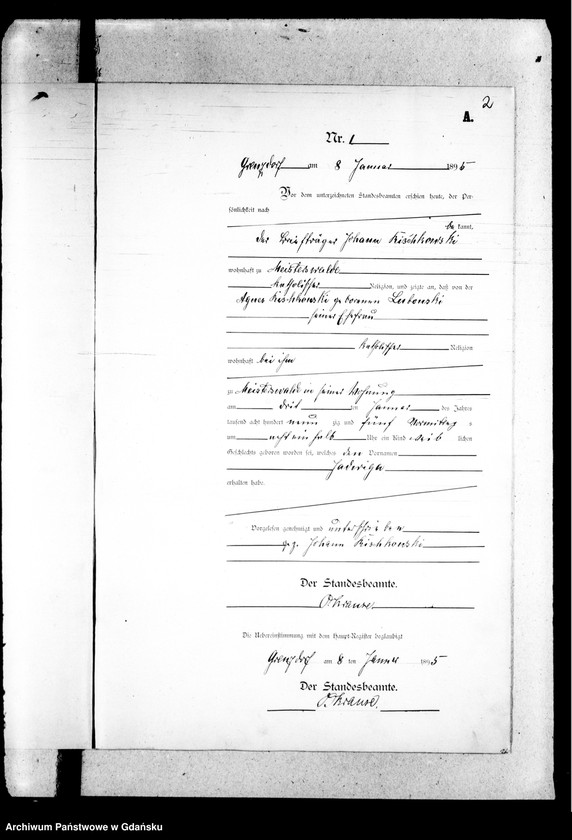 2
A.
Nr. 1
Grenzdorf am 8 Januar 1895
Vor dem unterzeichneten Standesbeamten erschien heute, der Per-
sönlichkeit nach
be kannt,
der Briefträger Johann Kischkowski
wohnhaft zu Meisterswalde
katholischer Religion, und zeigte an, daß von der
Agnes Kischkowski geborenen Lubonski
seiner Ehefrau
katholischer Religion
wohnhaft bei ihm
zu Meisterswalde in seiner Wohnung
am drit ten Januar des Jahres
tausend acht hundert neun zig und fünf Vormittag s
um acht ein halb Uhr ein Kind weib lichen
Geschlechts geboren worden sei, welches den Vornamen
Hadwiga
erhalten habe.
Vorgelesen, genehmigt und unterschrieben
gez. Johann Kischkowski
Der Standesbeamte.
O. Krause.
Die Uebereinstimmung mit dem Haupt-Register beglaubigt
Grenzdorf am 8 ten Januar 1895
Der Standesbeamte.
O. Krause.
Archiwum Państwowe w Gdańsku